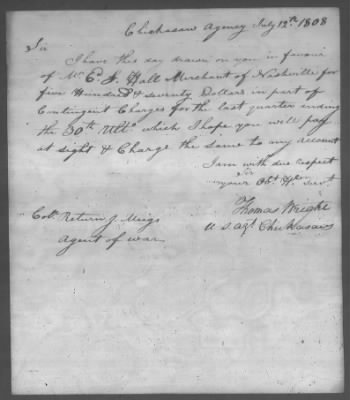 Chickasaw Agency July 12th 1808
Sir
I have this day drawn on you in favour
of Mr. Ed. S. Hall Merchant of Nashville for
five Hundred & seventy Dollars in part of
Contingent Charges for the last quarter ending
the 30th Ulto. which I hope you will pay
at sight & Charge the same to my account
I am with due respect
Sir
your Obt. Hble Servt
Thomas Wright
U S agt Chickasaws
Coll. Return J. Meigs
Agent of war